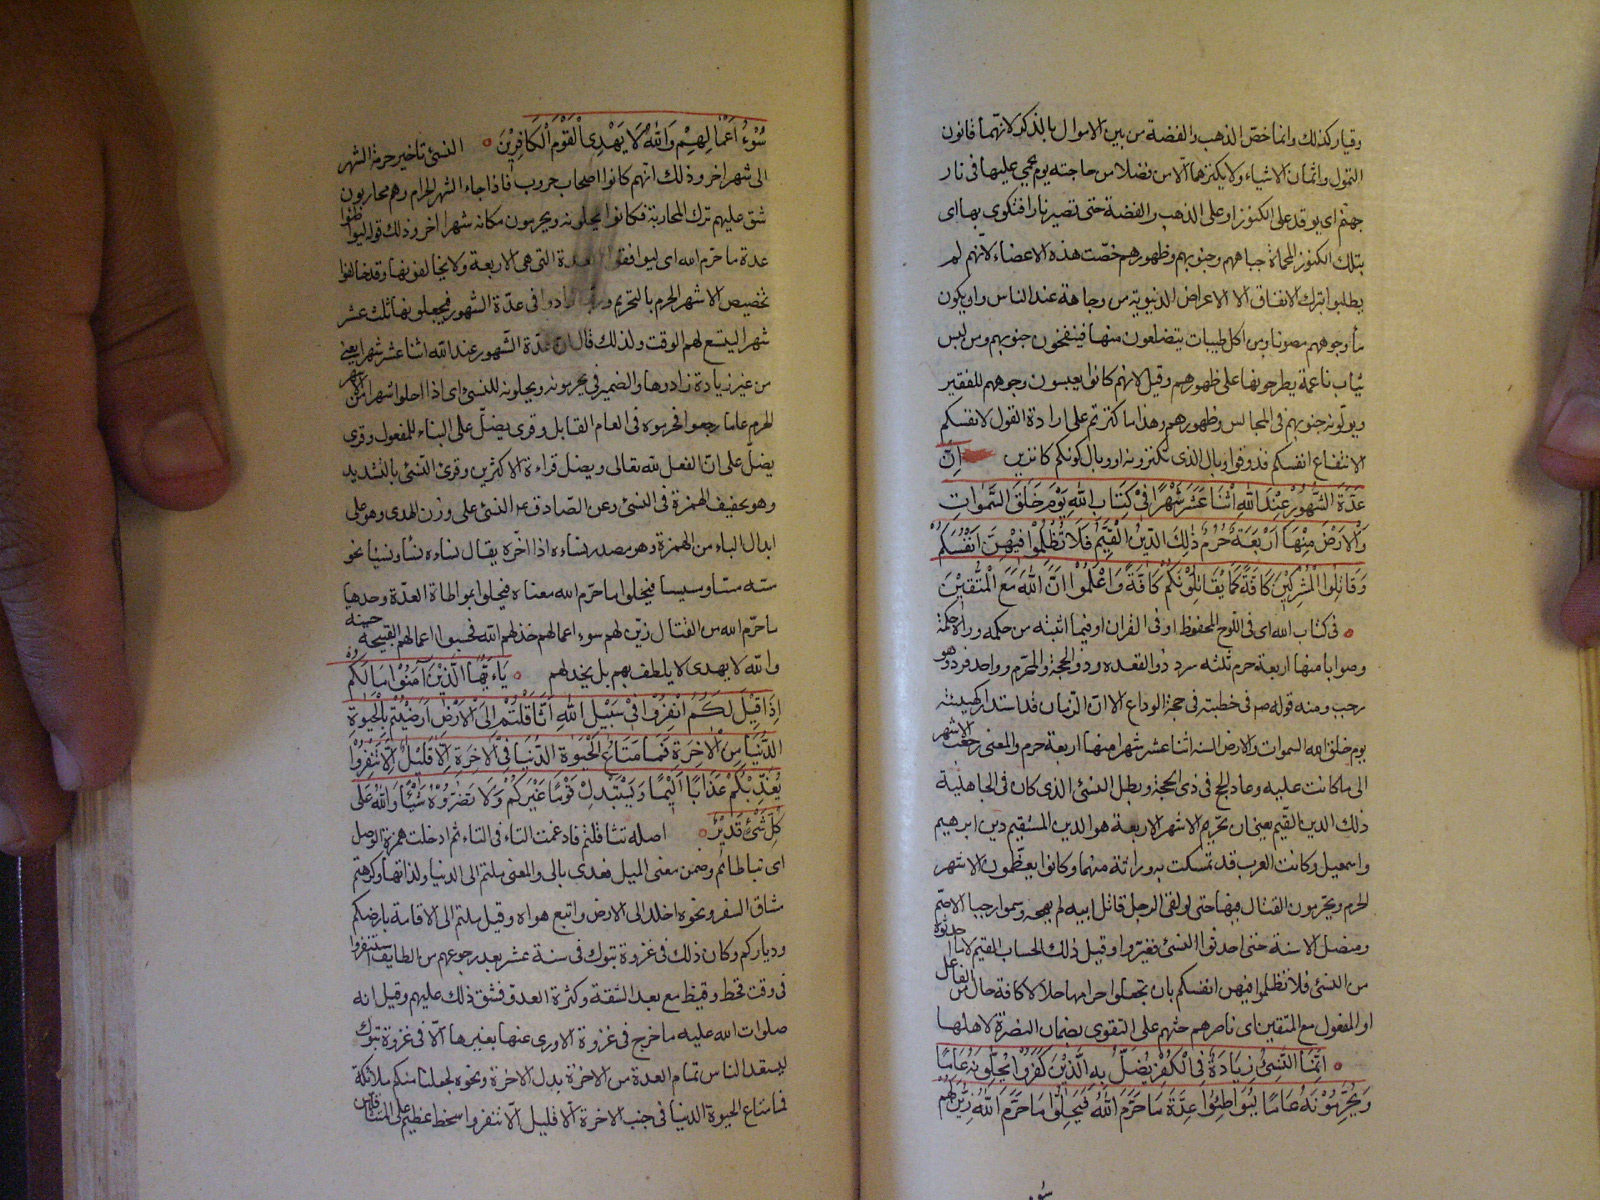 وقيل كذلك وانما خصّ الذهب والفضة من بين الاموال بالذكر لانهما قانون
التموّل واثمان الاشياء ولا يكنزهما الّا من فضلا من حاجته يوم يحمى عليها فى نار
جهنم اى يوقد على الكنوز او على الذهب والفضة حتى تصير نارا فتكوى بها اى
بتلك الكنوز المحماة جباههم وجنوبهم وظهورهم خصّت هذه الاعضاء لانّهم لم
يطلبوا بترك الانفاق الا الاعراض الدنيوية من وجاهة عند الناس وان يكون
ماء وجوههم مصونا ومن اكل طيبات يتضلعون منها فينفخون جنوبهم ومن لبس
ثياب ناعمة يطرحونها على ظهورهم وقيل لانهم كانوا يعبسون وجوههم للفقير
ويولّونه جنوبهم فى المجالس وظهورهم وهذا ما كنزتم على ارادة القول لانفسكم
لانتفاع انفسكم فذوقوا وبال الذى تكنزونه او وبال كونكم كانزين اِنَّ
عِدَّةَ الشُّهُورِ عِنْدَ اللهِ اثْنَا عَشَرَ شَهْرًا فِى كِتَابِ اللهِ يَوْمَ خَلَقَ السَّمٰوَاتِ
وَالْاَرْضَ مِنْهَا اَرْبَعَةٌ حُرُمٌ ذٰلِكَ الدِّينُ الْقَيِّمُ فَلَا تَظْلِمُوا فِيهِنَّ اَنْفُسَكُمْ
وَقَاتِلُوا الْمُشْرِكِينَ كَافَّةً كَمَا يُقَاتِلُونَكُمْ كَافَّةً وَاعْلَمُوا اَنَّ اللهَ مَعَ الْمُتَّقِينَ
فى كتاب الله اى فى اللوح المحفوظ او فى القران او فيما اثبته من حكمه ورآه حكمة
وصوابا منها اربعة حرم ثلثة سرد ذو القعده وذو الحجة والمحرّم وواحد فرد وهو
رجب ومنه قوله ص فى خطبته فى حجة الوداع الا انّ الزمان قد استدار كهيئته
يوم خلق الله السموات والارض السنه اثنا عشر شهرا منها اربعة حرم والمعنى رجعت الاشهر
الى ما كانت عليه وعاد الحج فى ذى الحجة وبطل النسئ الذى كان فى الجاهلية
ذلك الدين القيّم يعنى ان تحريم الاشهر الاربعة هو الدين المستقيم دين ابرهيم
واسمعيل وكانت العرب قد تمسكت به وراثة منهما وكانوا يعظّمون الاشهر
الحرم ويحرّمون القتال فيها حتى لو لقى الرجل قاتل ابيه لم يهجه وسموا رجبا الاصمّ
ومنصل الاسنة حتى احدثوا النسئ فغيّروا وقيل ذلك الحساب القيم لا ما احدثوه
من النسئ فلا تظلموا فيهن انفسكم بان تجعلوا حرامها حلالا كافة حال من الفاعل
او المفعول مع المتقين اى ناصرهم حثهم على التقوى بضمان النصرة لاهلها
اِنَّمَا النَّسِئُ زِيَادَةٌ فِى الْكُفْرِ يُضَلُّ بِهِ الَّذِينَ كَفَرُوا يُحِلُّونَهُ عَامًا
وَيُحَرِّمُونَهُ عَامًا لِيُوَاطِئُوا عِدَّةَ مَا حَرَّمَ اللهُ فَيُحِلُّوا مَا حَرَّمَ اللهُ زُيِّنَ لَهُمْ
سُوۤءُ اَعْمَالِهِمْ وَاللهُ لَا يَهْدِى الْقَوْمَ الْكَافِرِينَ النسئ تاخير حرمة الشهر
الى شهر اخر وذلك انهم كانوا اصحاب حروب فاذا جاء الشهر الحرام وهم محاربون
شق عليهم ترك المحاربة فكانوا يحلونه ويحرمون مكانه شهرا اخر وذلك قوله ليواطئوا
عدة ما حرّم الله اى ليوافقوا العدة التى هى الاربعة ولا يخالفونها وقد خالفوا
تخصيص الاشهر الحرم بالتحريم وربما زادوا فى عدّة الشهور فيجعلونها ثلث عشر
شهرا ليتسع لهم الوقت ولذلك قال ان عدّة الشهور عند الله اثنا عشر شهرا يعنى
من غير زيادة زادوها والضمير فى يحرمونه ويحلونه للنسئ اى اذا احلوا شهرا من الاشهر
الحرم عاما رجعوا فحرموه فى العام القابل وقرى يضلّ على البناء للمفعول وقرى
يضلّ على انّ الفعل لله تعالى ويضل قراءة الاكثرين وقرئ النّسئ بالتشديد
وهو تخفيف الهمزة فى النسئ وعن الصّادق ع النسئ على وزن الهدى وهو على
ابدال الياء من الهمزة وهو مصدر نساءه اذا اخّره يقال نساءه نسأ ونسيئا نحو
مسّه مسّا ومسيسا فيحلوا ما حرّم الله معناه فيحلوا بمواطاة العدّة وحدها
ما حرّم الله من القتال زيّن لهم سوء اعمالهم خذلهم الله فحسبوا اعمالهم القبيحة حسنة
والله لا يهدى لا يلطف بهم بل يخذلهم يَاۤءَيُّهَا الَّذِينَ آمَنُوا مَا لَكُمْ
اِذَا قِيلَ لَكُمُ انْفِرُوا فِى سَبِيلِ اللهِ اثَّاقَلْتُمْ اِلَى الْاَرْضِ اَرَضِيتُمْ بِالْحَيٰوةِ
الدُّنْيَا مِنَ الْاٰخِرَةِ فَمَا مَتَاعُ الْحَيٰوةِ الدُّنْيَا فِى الْاٰخِرَةِ اِلَّا قَلِيلٌ اِلَّا تَنْفِرُوا
يُعَذِّبْكُمْ عَذَابًا اَلِيمًا وَيَسْتَبْدِلْ قَوْمًا غَيْرَكُمْ وَلَا تَضُرُّوهُ شَيْئًا وَاللهُ عَلَى
كُلِّ شَىْءٍ قَدِيرٌ اصله تثاقلتم فادغمت التاء فى الثاء ثم ادخلت همزة الوصل
اى تباطأتم وضمن معنى الميل فعدى بالى والمعنى ملتم الى الدنيا ولذاتها وكرهتم
مشاق السفر ونحوه اخلد الى الارض واتبع هواه وقيل ملتم الى الاقامة بارضكم
ودياركم وكان ذلك فى غزوة تبوك فى سنة عشر بعد رجوعهم من الطايف استنفروا
فى وقت قحط وقيظ مع بعد الشقة وكثرة العدوّ فشق ذلك عليهم وقيل انه
صلوات الله عليه ما خرج فى غزوة الا ورى عنها بغيرها الّا فى غزوة تبوك
ليستعد الناس تمام العدة من الاخرة بدل الاخرة ونحوه لجعلنا منكم ملائكة
فما متاع الحيوة الدنيا فى جنب الاخرة الّا قليل الّا تنفروا سخط عظيم على المتثاقلين